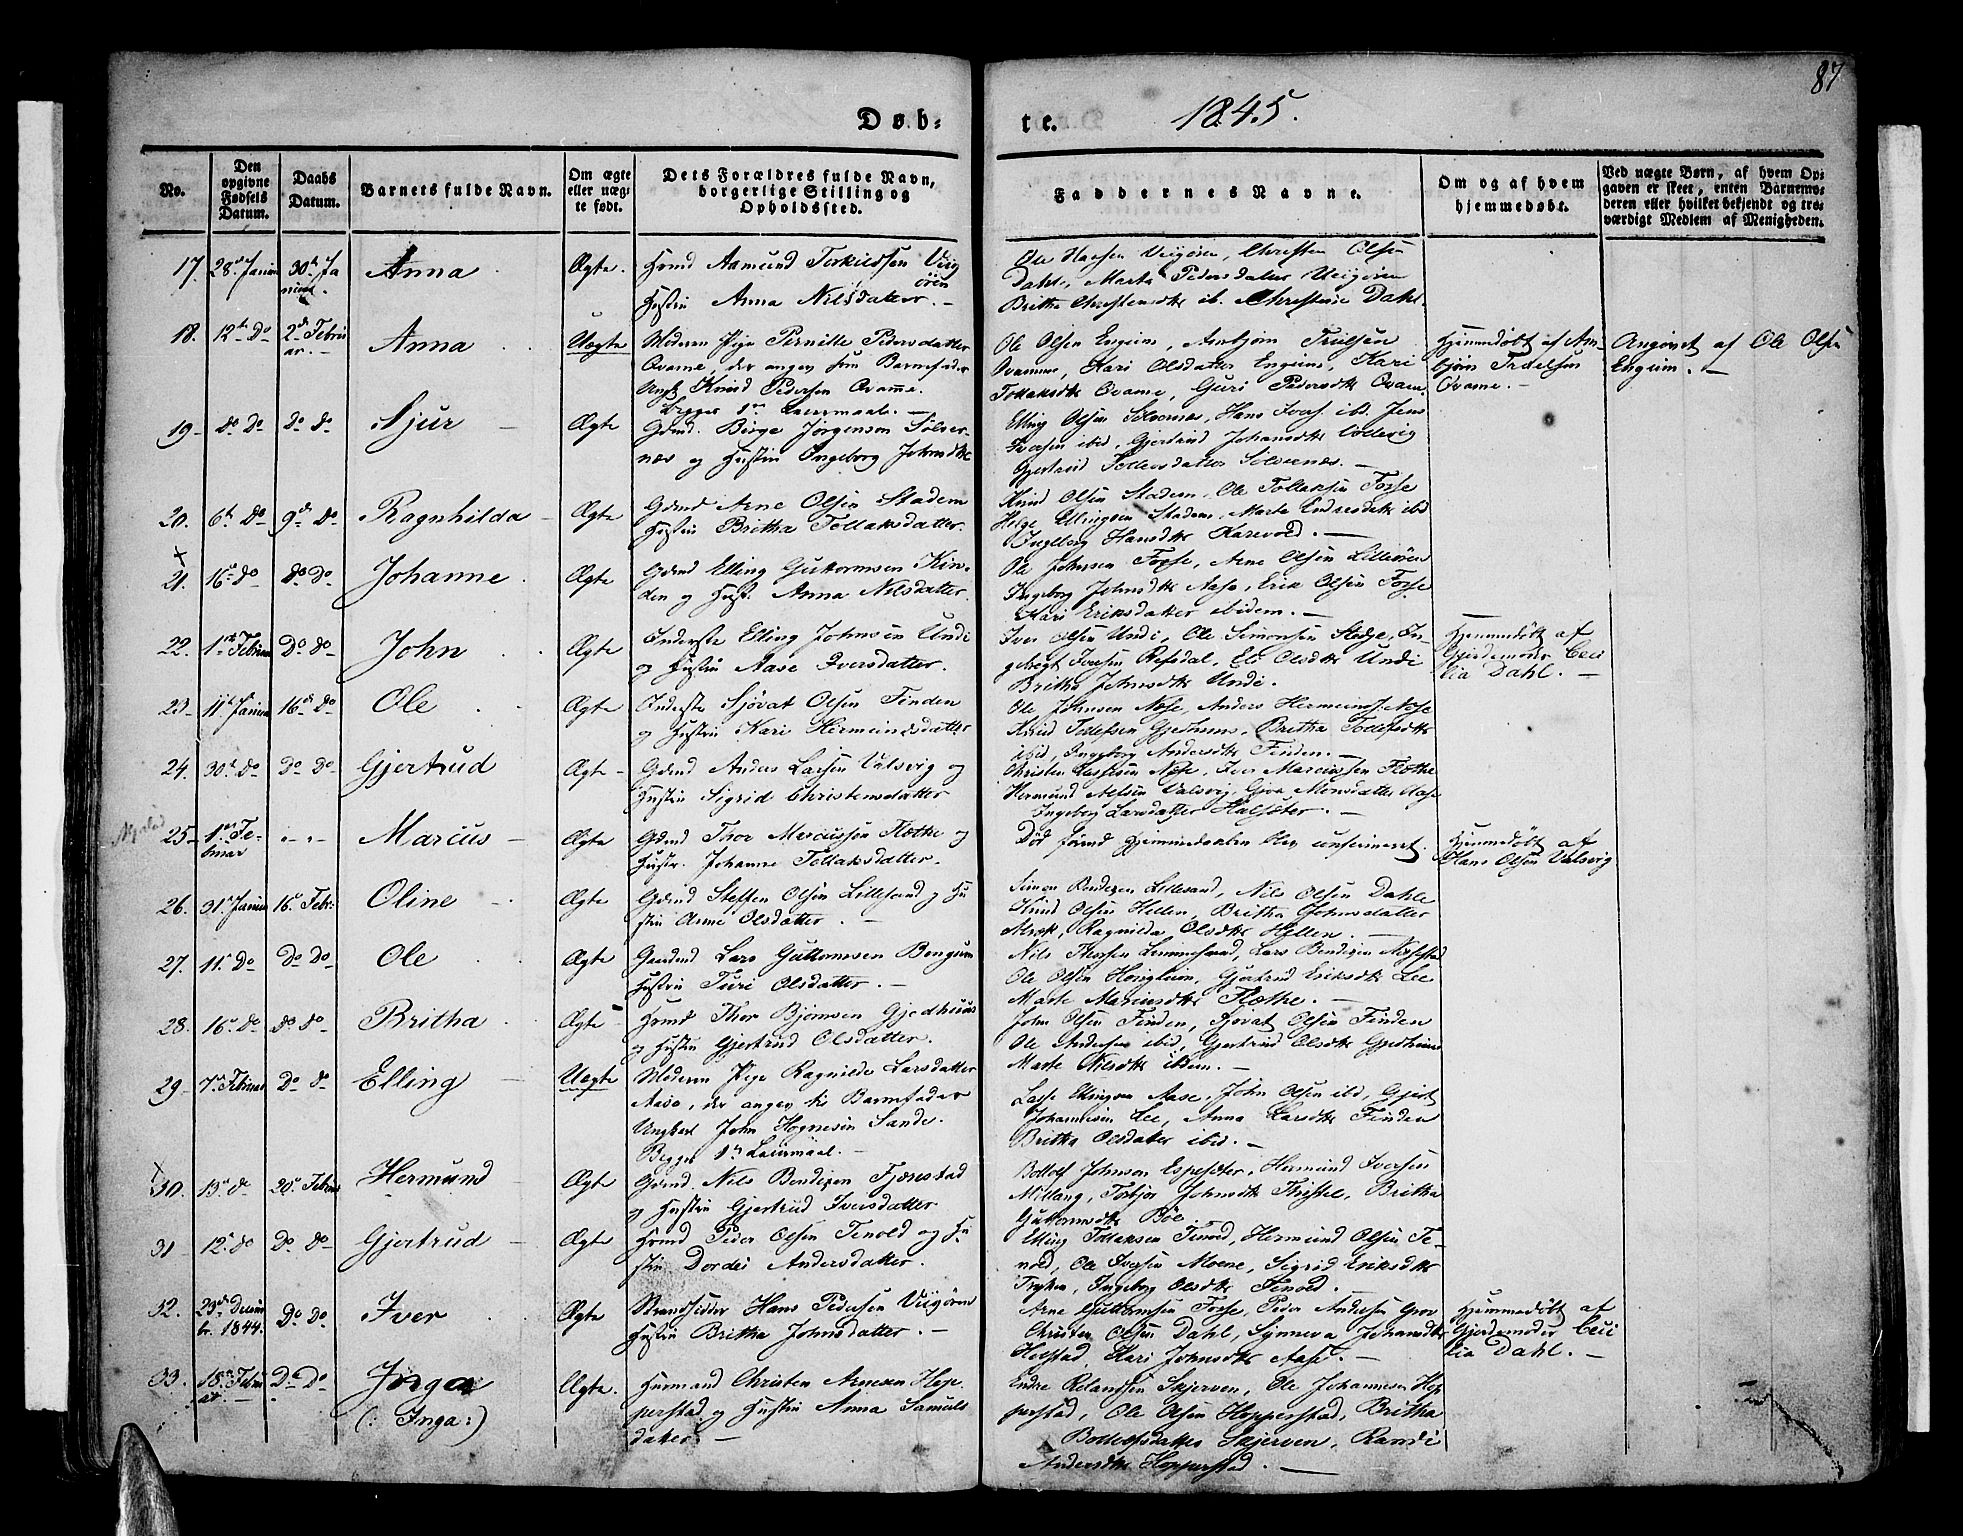 87
Døb- te. 1845.
No.
Den opgivne Fødsels Datum.
Daabs Datum.
Barnets fulde Navn.
Om ægte eller uægte født.
Dets Forældres fulde Navn, borgerlige Stilling og Opholdssted.
Faddernes Navne.
Om og af hvem hjemmedøbt.
Ved uægte Børn, af hvem Opgaven er skeet, enten Barnemoderen eller hvilket bekjendt og troværdigt Medlem af Menigheden.
17. 28de 30te Anna Ægte. Huusmd Aamund Torkildsen Viigören
Hustru Anna Nilsdatter. —
Dahl, Marta Pedersdatter Viigören
Britha Christensdtr ib. Christine Dahl
18. 12te Do 2de Februar. — Anna Uægte Moderen Pige Pernille Pedersdatter
Qvamme, der angav som Barnefader
Ungk Knud Pedersen Qvamme.
Begges 1ste Leiermaal. —
Ole Olsen Engum, Arnbjørn Truelsen
Qvamme, Kari Olsdatter Engum, Kari
Tollaksdtr Qvame, Guri Pedersdtr Qvame
Hjemmedöbt af Arnbjörn Truelsen
Qvame. —
Angivet af Ole Olsen
Engum. —
19 Do Do Do Do Sjur — Ægte Gdmd. Börge Jörgensen Sölsernæs
og Hustru Ingeborg Johnsdtr
Elling Olsen Sölsernæs, Hans Ivers. ib. Jens
Iversen ibid, Gjertrud Johansdtr
Gjertrud Sölsernæs. —
20. 6te Do 9de Do Ragnhilda — Ægte Gdmd Arne Olsen Stadem
Hustru Britha Tollaksdatter.
Knud Olsen Stadem, Ole Tollaksen Fosse
Helge Ellingsen Stadem, Marta Endresdtr ibid
Ingeborg Hansdtr —
21. 16de do do do Johanne. Ægte Gdmd Elling Guttormsen Kinden
og Hust. Anna Nilsdatter.
Ole Johnsen Fosse, Arne Olsen Lilleören
Ingeborg Johnsdtr Aase, Erik Olsen Fosse
Kari Eriksdatter ibidem. —
22. 1ste Februar Do Do John Ægte Inderste Elling Johnsen Undi
og Hustru Aase Iversdatter.
Iver Olsen Undi, Ole Simonsen Stedje, Ingebregt
Iversen Refsdal, Eli Olsdtr Undi
Britha Johnsdtr Undi.
Hjemmedöbt af
Gjordemoder Cecilia
Dahl. —
23 11te Januar 16de do Ole Ægte Inderste Sjövat Olsen Finden
og Hustru Kari Hermundsdatter
Ole Johnsen Nese, Anders Hermunds. Nese
Britha
ibid, Ingeborg Andersdtr Finden. —
24. 30te do Do Do Gjertrud Ægte — Gdmd Anders Larsen Valsvig og
Hustru Sigrid Christensdatter
Christen Nese, Iver Marcussen Fløthe
Hermund Nilsen Valsvig, Gjöa Monsdatter Aase
Ingeborg Larsdatter Halsæter. —
25 1ste Februar " " Marcus — Ægte Gdmd Thor Marcussen Fløthe og
Hustr. Johanne Tollaksdatter.
Död förend Hjemmedaaben blev confirmeret.
Hjemmedöbt af
Hans Olsen Valsvig
26. 31te Januar 16de Febr. Oline — Ægte Gdmd Steffen Olsen Lillesand og Hustru
Anne Olsdatter. —
Simon Bendixen Lillesand, Nils Olsen Dahle
Knud Olsen Hellen, Britha Johnsdatter
Ragnilda Olsdtr Hellen. —
27. 11te Do Do Do Ole Ægte Gaardmd Lars Guttormsen Bongum
Hustru Turi Olsdatter. —
Nils Lars Bendixen Njøsstad
Ole Olsen Gjertrud Eriksdtr Lee
Marte Marcusdtr Fløthe. —
28. 16de do do do Britha Ægte — Huusmd Thor Bjørnsen Gjedhuus
og Hustru Gjertrud Olsdatter.
John Olsen Finden, Sjövat Olsen Finden
Ole Andersen ibid, Gjertrud Olsdtr Gjedhuus
Marte Nilsdtr ibdem. —
29. 7de Februar Do do Elling — Uægte Moderen Pige Ragnilde Larsdatter
Aase, der angav til Barnefader
Ungkarl John Hognesen Sande.
Begges 1ste Leiermaal. —
Lasse Ellingsen Aase, John Olsen ibid, Gjert
Johannesen Lee, Anna Larsdtr Finden
Britha Olsdatter ibid. —
30. 13de do 20de Februar Hermund Ægte Gdmd. Nils Bendixen Fjærestad
og Hustru Gjertrud Iversdatter
Botolf Johnsen Espesæter, Hermund Iversen
Millang, Torbjør Johnsdtr Thistel, Britha
Guttormsdtr Böe.
31 12te do Do Do Gjertrud — Ægte Huusmd Peder Olsen Tenold og Hustru
Dordei Andersdatter.
Elling Tollaksen Tenold, Hermund Olsen Tenold,
Ole Iversen Moene, Sigrid Eriksdtr
Ingeborg Olsdtr Tenold. —
32. 29de December 1844. Do Do Iver Ægte Strandsidder Hans Pedersen Viigören
Hustru Britha Johnsdatter. —
Arne Guttormsen Fosse, Peder Andersen
Christen Olsen Dahl, Synneva Johansdtr
Holstad, Kari Johnsdtr Aase. —
Hjemmedöbt af
Gjordemoder Cecilia
Dahl. —
33. 18de Februar. — Do Do Inga
(: Inga :) Ægte. Huusmand Christen Arnesen Hopperstad
og Hustru Anna Samuelsdatter
—
Endre Rolandsen Skjerven, Ole Johannesen Hopperstad,
Ole Olsen Hopperstad, Britha
Botolfsdatter Skjerven, Randi
Andersdtr Hopperstad. —